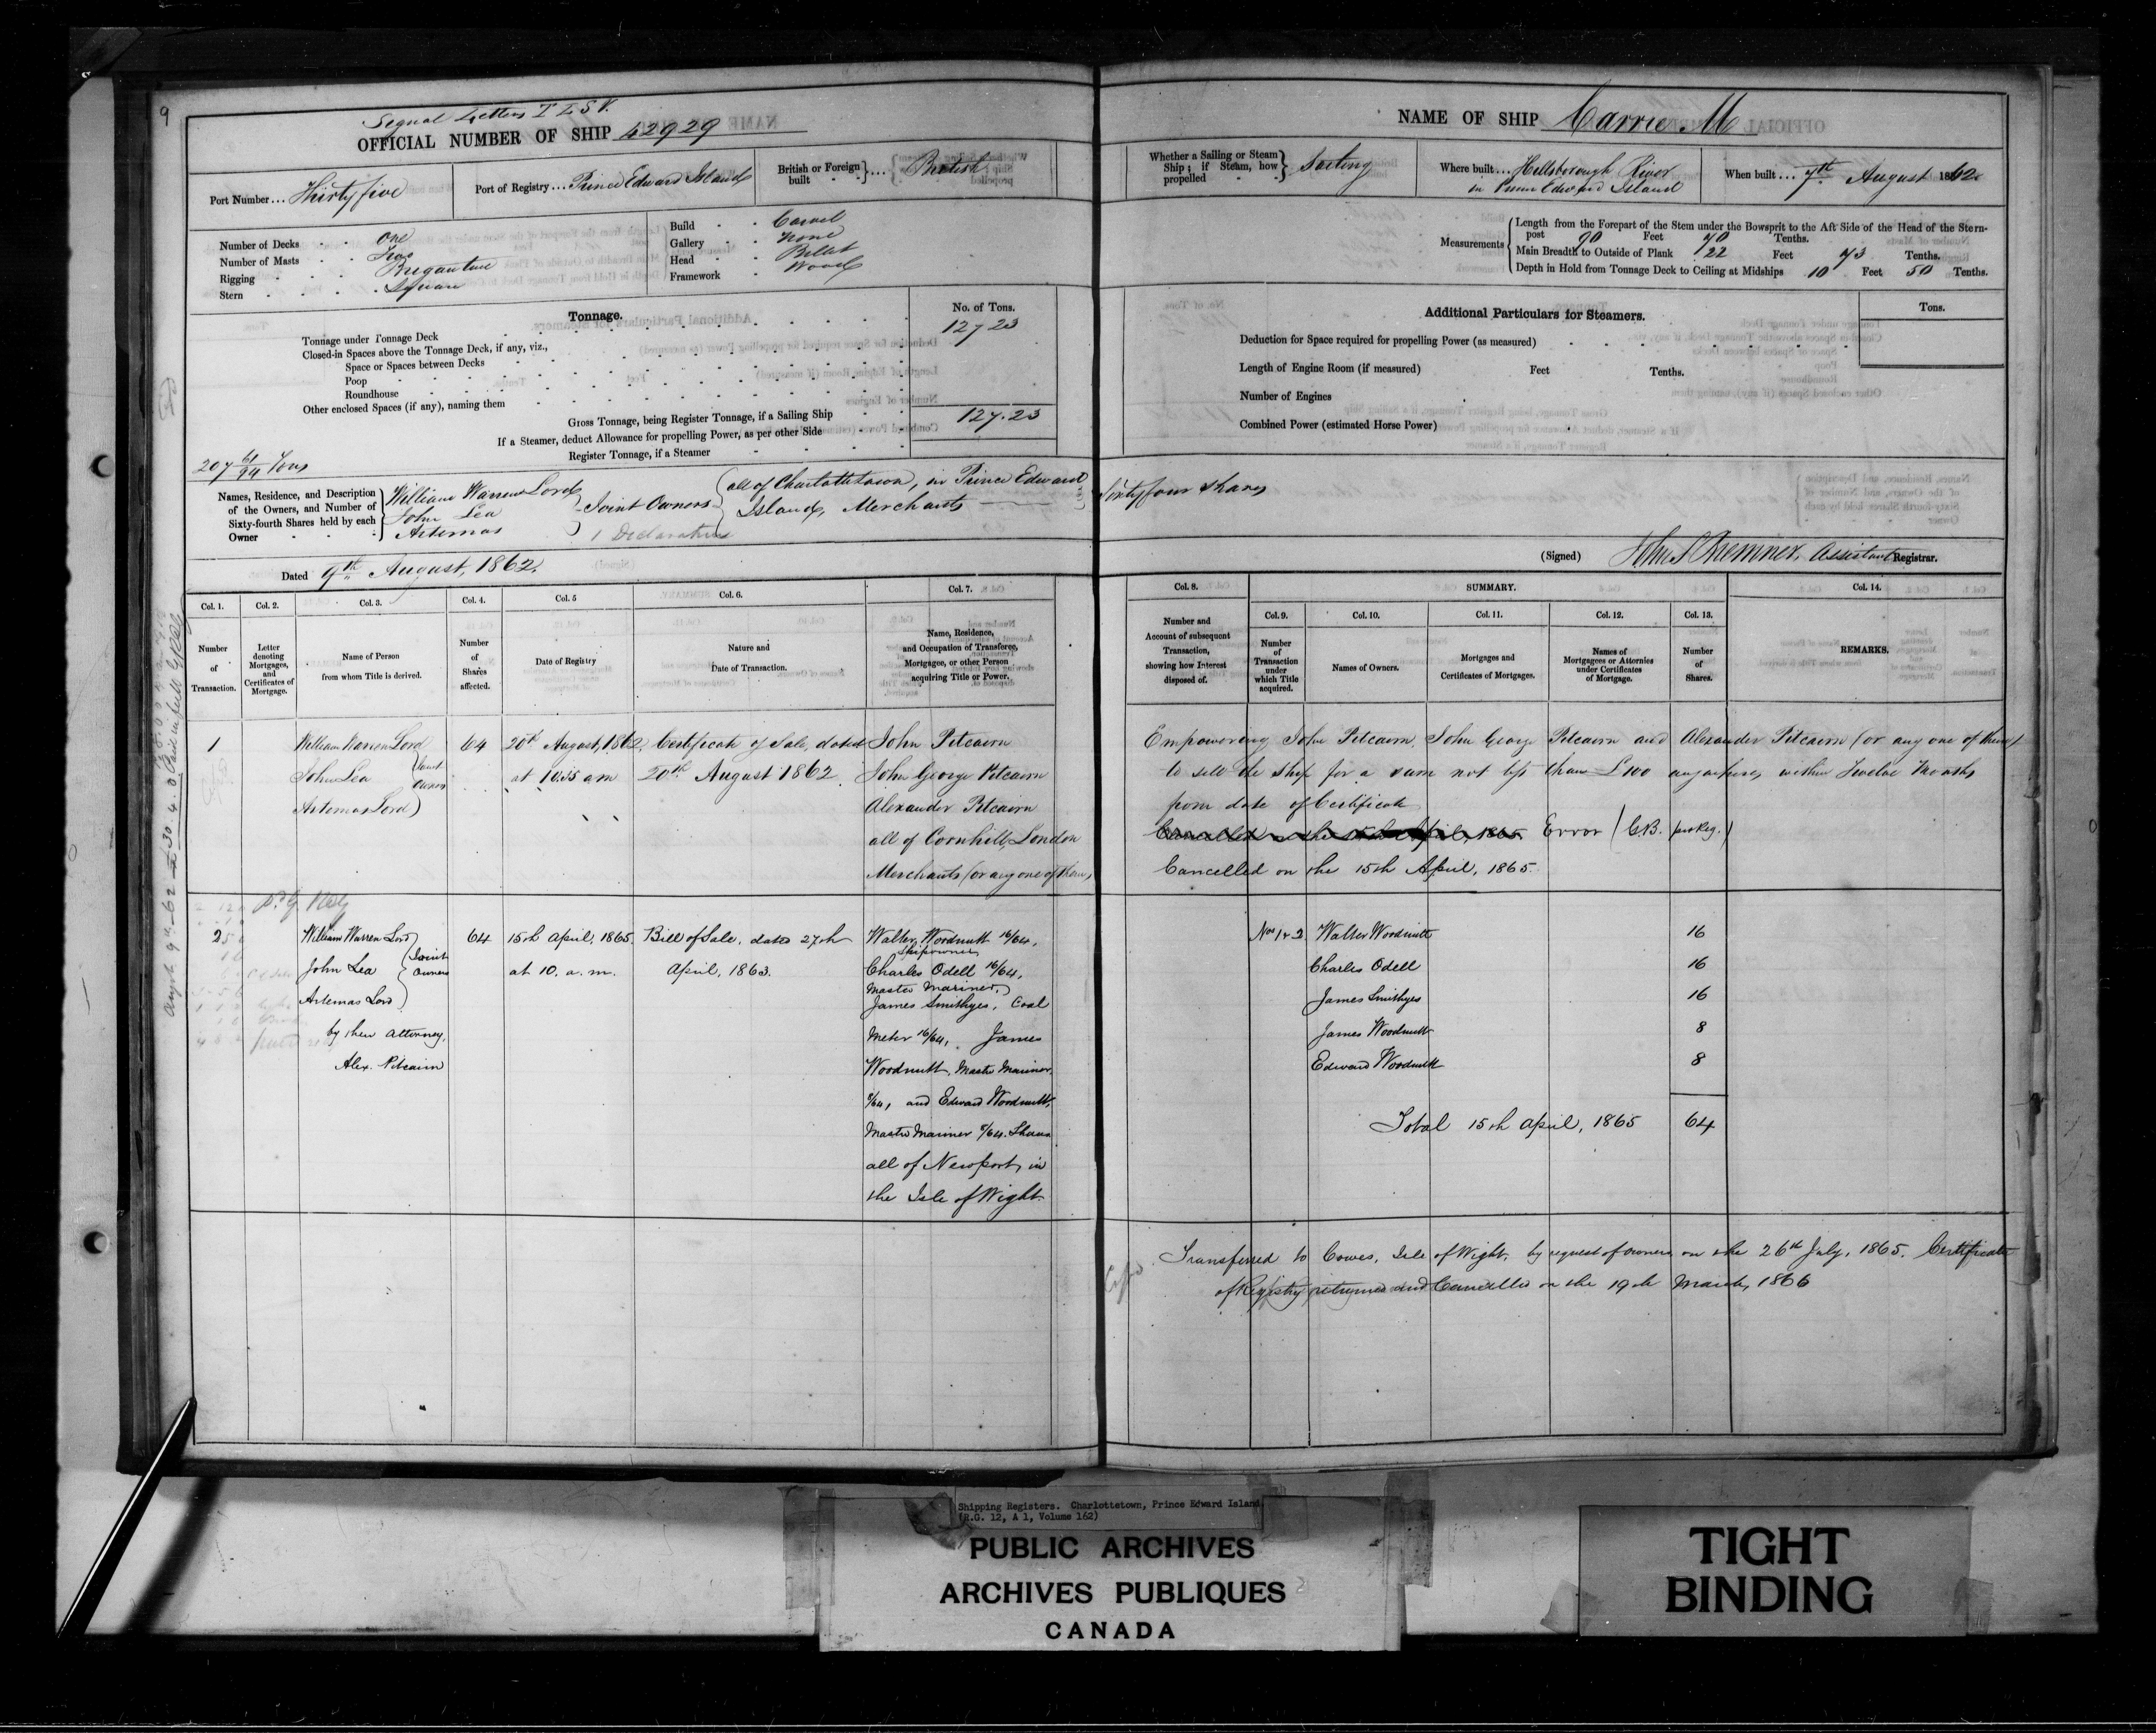 9
Signal Letters T L S V.
OFFICIAL NUMBER OF SHIP 42929
Port Number ... Thirty five
Port of Registry ... Prince Edward Island
British or Foreign built } ... British
Number of Decks One
Number of Masts Two
Rigging Brigantine
Stern Square
Build Carvel
Gallery None
Head Billet
Framework Wood
Tonnage.
No. of Tons.
Tonnage under Tonnage Deck 127 23
Closed-in Spaces above the Tonnage Deck, if any, viz.,
Space or Spaces between Decks
Poop
Roundhouse
Other enclosed Spaces (if any), naming them
Gross Tonnage, being Register Tonnage, if a Sailing Ship 127.23
If a Steamer, deduct Allowance for propelling Power, as per other Side
Register Tonnage, if a Steamer
207 61/94 Tons
Names, Residence, and Description of the Owners, and Number of Sixty-fourth Shares held by each Owner
William Warren Lord
John Lea
Artemas
Joint Owners
1 Declaration
all of Charlottetown, in Prince Edward
Island, Merchants
Dated 9th August, 1862.
NAME OF SHIP Carrie M
Whether a Sailing or Steam Ship; if Steam, how propelled } Sailing
Where built ... Hillsborough River
in Prince Edward Island
When built ... 7th August 1862
Measurements
Length from the Forepart of the Stem under the Bowsprit to the Aft Side of the Head of the Stern-
post 90 Feet 70 Tenths.
Main Breadth to Outside of Plank 22 Feet 73 Tenths.
Depth in Hold from Tonnage Deck to Ceiling at Midships 10 Feet 50 Tenths.
Additional Particulars for Steamers.
Tons.
Deduction for Space required for propelling Power (as measured)
Length of Engine Room (if measured) Feet Tenths.
Number of Engines
Combined Power (estimated Horse Power)
Sixty four Shares
(Signed) John S Bremner, Assistant Registrar.
Col. 1. Col. 2. Col. 3. Col. 4. Col. 5 Col. 6. Col. 7.
Number of Transaction.
Letter denoting Mortgages, and Certificates of Mortgage.
Name of Person from whom Title is derived.
Number of Shares affected.
Date of Registry
Nature and Date of Transaction.
Name, Residence, and Occupation of Transferee, Mortgagee, or other Person acquiring Title or Power.
Col. 8. SUMMARY. Col. 14.
Col. 9. Col. 10. Col. 11. Col. 12. Col. 13.
Number and Account of subsequent Transaction, showing how Interest disposed of.
Number of Transaction under which Title acquired.
Names of Owners.
Mortgages and Certificates of Mortgages.
Names of Mortgagees or Attornies under Certificates of Mortgage.
Number of Shares.
REMARKS.
1
William Warren Lord
John Lea
Artemas Lord
Joint Owners
64
20th August, 1862
at 10.55 am
Certificate of Sale, dated
20th August 1862
John Pitcairn
John George Pitcairn
Alexander Pitcairn
all of Cornhill, London
Merchants (or any one of them)
Empowering John Pitcairn, John George Pitcairn and Alexander Pitcairn (or any one of them)
to sell the Ship for a sum not less than £100 any where, within Twelve Months
from date of Certificate
Cancelled on the 15th April, 1865 Error (C.B. pro Reg.)
Cancelled on the 15th April, 1865.
2
William Warren Lord
John Lea
Artemas Lord
Joint Owners
by their Attorney,
Alex. Pitcairn
64
15th April, 1865.
at 10. a. m.
Bill of Sale, dated 27th
April, 1863.
Walter Woodnutt 16/64,
Shipowner
Charles Odell 16/64,
Master Mariner,
James Smithyes, Coal
Meter 16/64, James
Woodnutt, Master Mariner
8/64, and Edward Woodnutt,
Master Mariner 8/64 Shares
all of Newport, in
the Isle of Wight.
Nos 1 & 2
Walter Woodnutt 16
Charles Odell 16
James Smithyes 16
James Woodnutt 8
Edward Woodnutt 8
Total 15th April, 1865 64
Transferred to Cowes, Isle of Wight, by request of owners on the 26th July, 1865. Certificate
of Registry returned and Cancelled on the 19th March, 1866
Shipping Registers. Charlottetown, Prince Edward Island.
(R.G. 12, A 1, Volume 162)
PUBLIC ARCHIVES
ARCHIVES PUBLIQUES
CANADA
TIGHT
BINDING